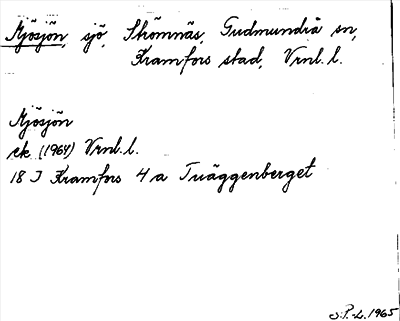 Mjösjön, sjö, Strömnäs, Gudmundrå sn,
Kramfors stad, Vrnl. l.
Mjösjön
ek (1964) Vrnl. l.
18 J Kramfors 4 a Tväggenberget
S.P.-L. 1965